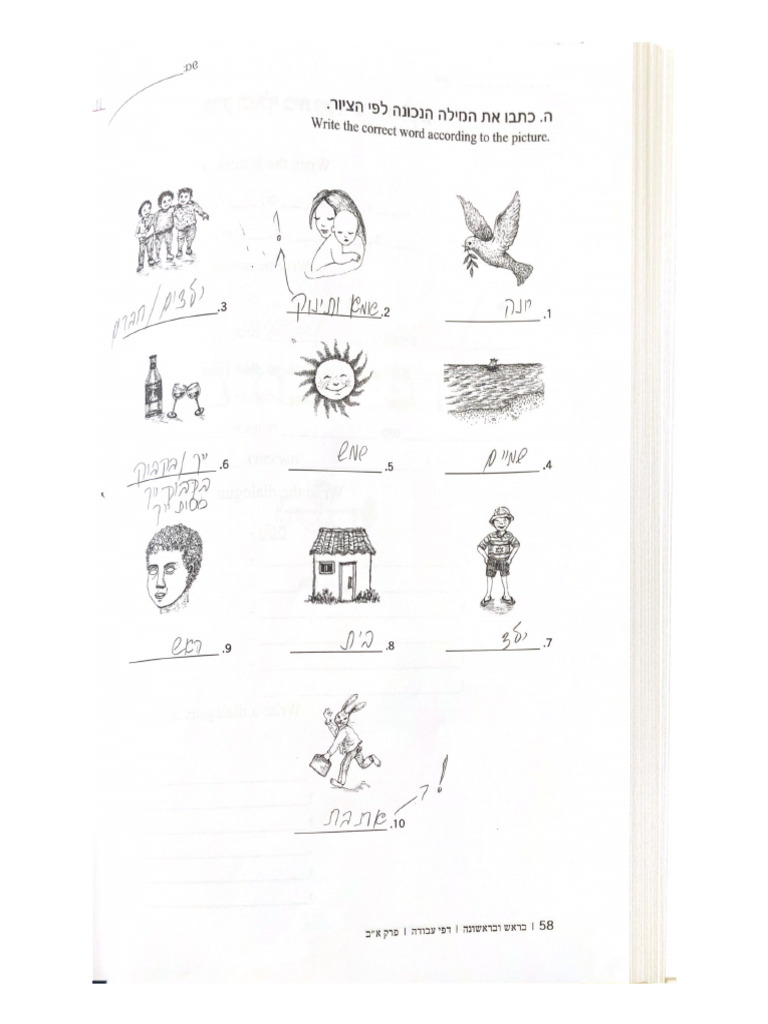 שם:
ה. כתבו את המילה הנכונה לפי הציור.
Write the correct word according to the picture.
1. יונה
2. אמא ותינוק
!
3. ילדים/חברים
4. שמיים
5. שמש
6. יין/בקבוק
בקבוק יין
כוסות יין
7. ילד
8. בית
9. ראש
10. ארנבת
!
58 | בראש ובראשונה | דפי עבודה | פרק א״ב